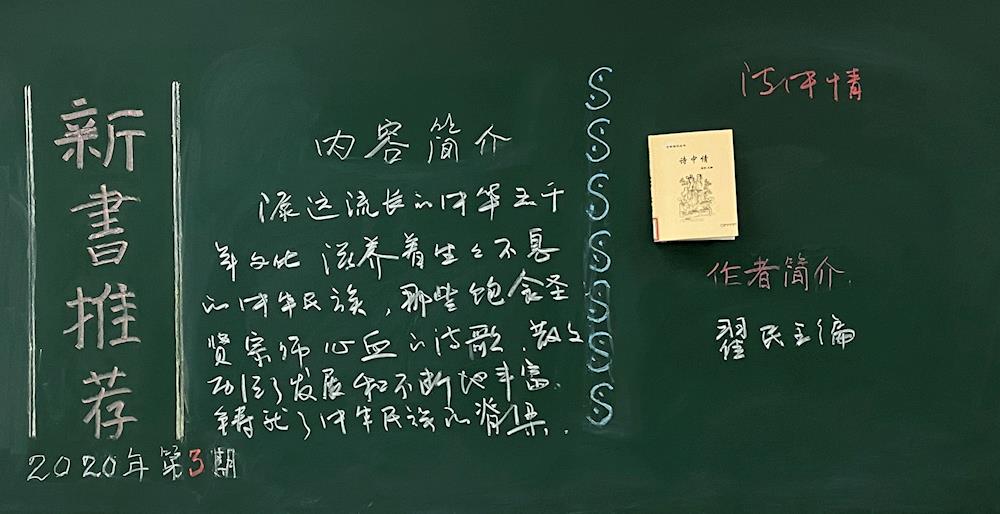 新書推荐
2020年第3期
内容简介
源远流长的中华五千
年文化 滋养着生生不息
的中华民族，那些饱含圣
贤宗师心血的诗歌、散文
发展和不断地丰富.
铸就了中华民族的脊梁.
S
S
S
S
S
S
S
诗中情
诗中情
作者简介
翟民主编